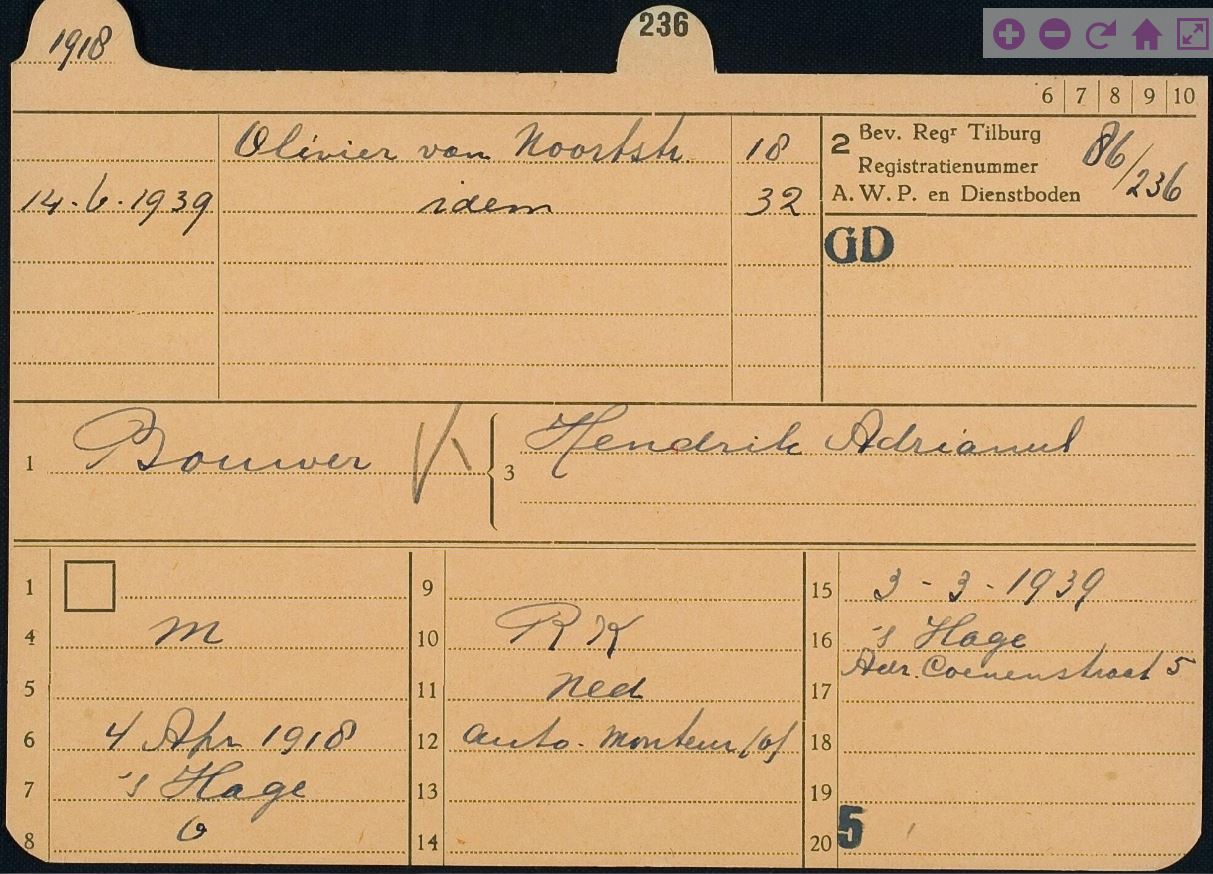 1918
236
6 7 8 9 10
Olivier van Noortstr. 18
14-6-1939 idem 32
2 Bev. Regr Tilburg
Registratienummer
A. W. P. en Dienstboden
86/236
GD
1 Bouwer
3 Hendrik Adrianus
1
4 M
5
6 4 Apr 1918
7 's Hage
8 O
9
10 R K
11 Ned
12 auto-monteur (o)
13
14
15 3-3-1939
16 's Hage
Adr. Coenenstraat 5
17
18
19
20 5